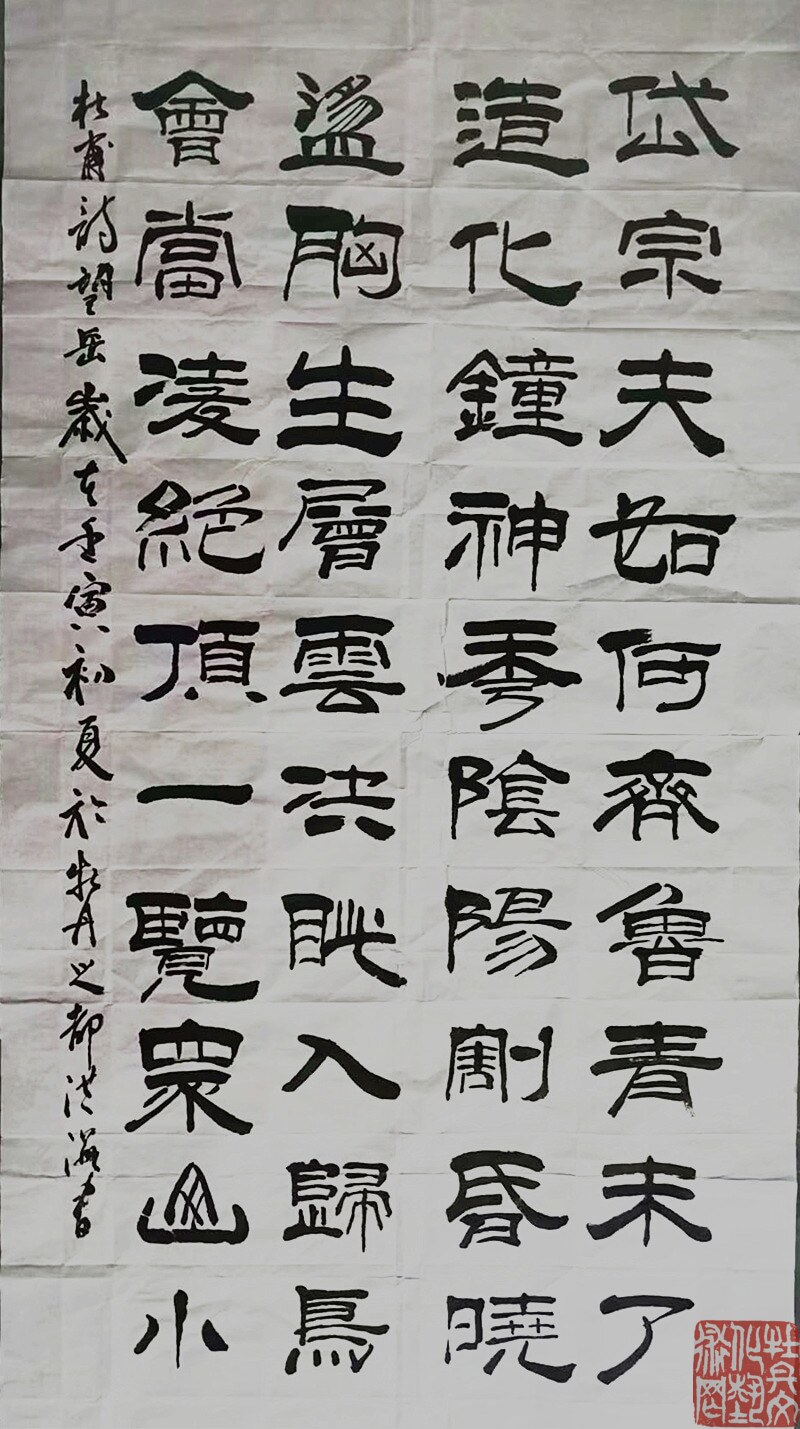 岱宗夫如何齊魯青未了
造化鐘神秀陰陽割昏曉
盪胸生層雲決眦入歸鳥
會當凌絕頂一覽眾山小
杜甫詩望岳歲在壬寅初夏於牡丹之都洪海書